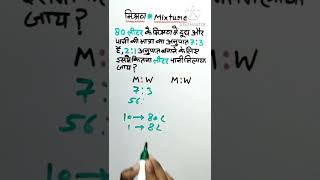 मिश्रण * Mixture
80 लीटर के मिश्रण में दूध और
पानी की मात्रा का अनुपात 7:3
है, 2:1 अनुपात बनाने के लिए
इसमें कितना लीटर पानी मिलाया
जाय ?
M : W
7 : 3
56 :
10 → 80 L
1 → 8 L
M : W